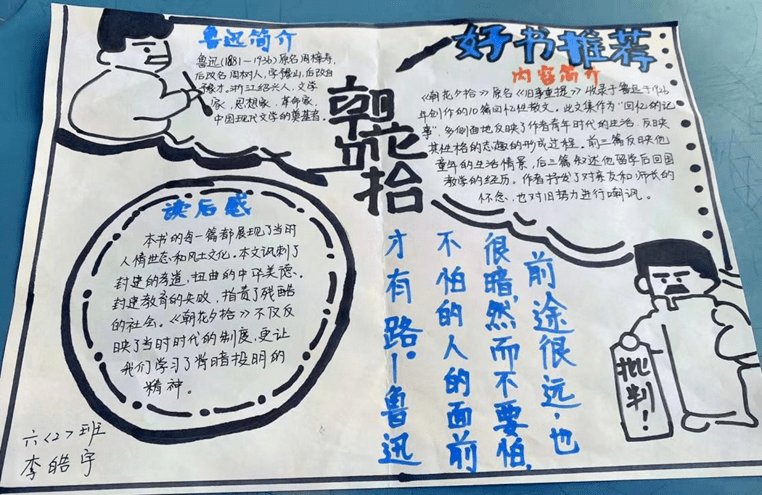 鲁迅简介
鲁迅(1881-1936)原名周樟寿,
后改名周树人,字豫山,后改自
豫才,浙江绍兴人,文学
家,思想家,革命家,
中国现代文学的奠基者。
朝花夕拾
好书推荐
内容简介
《朝花夕拾》原名《旧事重提》收录于鲁迅于1926
年创作的10篇回忆性散文。此文集作为"回忆的记
事",多侧面地反映了作者青年时代的生活,反映
其性格的志趣的形成过程。前三篇反映他
童年的生活情景,后三篇叙述他留学后回国
教学的经历。作者抒发了对亲友和师长的
怀念,也对旧势力进行嘲讽。
读后感
本书的每一篇都展现了当时
人情世态和风土文化。本文讽刺了
封建的孝道,扭曲的中华美德。
封建教育的失败,指责了残酷
的社会。《朝花夕拾》不仅反
映了当时时代的制度,更让
我们学习了背暗投明的
精神。
前途很远,也
很暗,然而不要怕,
不怕的人的面前
才有路。—鲁迅
批判!
六<2>班
李皓宇